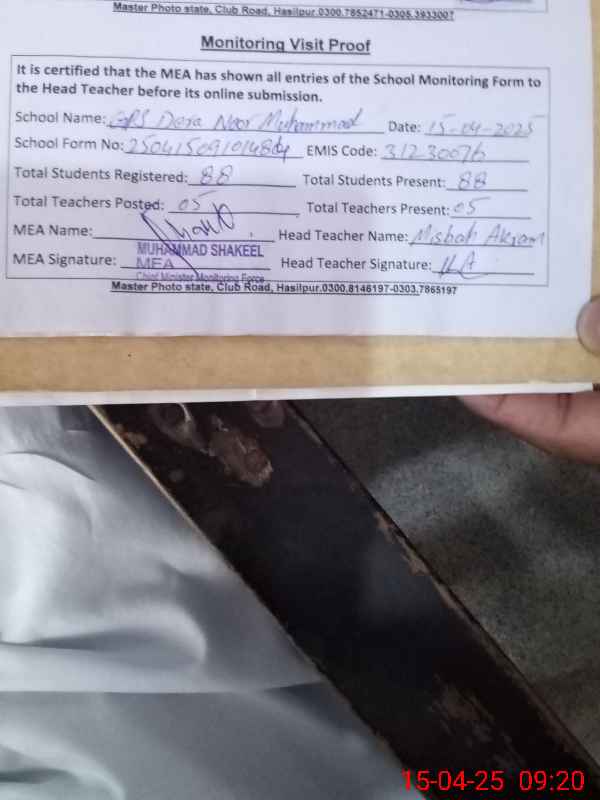 Master Photo state, Club Road, Hasilpur.0300.7852471-0305.3933007
Monitoring Visit Proof
It is certified that the MEA has shown all entries of the School Monitoring Form to
the Head Teacher before its online submission.
School Name: GPS Dera Noor Muhammad Date: 15-04-2025
School Form No: EMIS Code: 31230076
Total Students Registered: 88 Total Students Present: 88
Total Teachers Posted: 05 Total Teachers Present: 05
MEA Name: Head Teacher Name: Misbah Akram
MUHAMMAD SHAKEEL
MEA Signature: MEA Head Teacher Signature:
Chief Minister Monitoring Force
Master Photo state, Club Road, Hasilpur.0300.8146197-0303.7865197
15-04-25 09:20